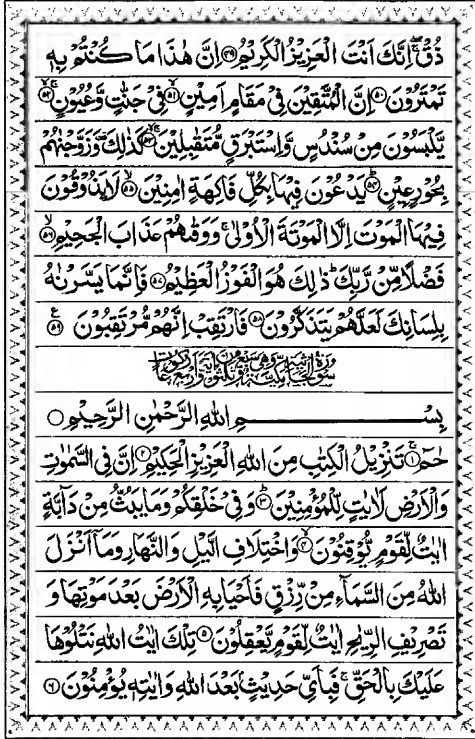 ذُقْ ۚۙ اِنَّكَ اَنْتَ الْعَزِيْزُ الْكَرِيْمُ ﴿۴۹﴾ اِنَّ هٰذَا مَا كُنْتُمْ بِهٖ
تَمْتَرُوْنَ ﴿۵۰﴾ اِنَّ الْمُتَّقِيْنَ فِيْ مَقَامٍ اَمِيْنٍ ﴿۵۱﴾ فِيْ جَنّٰتٍ وَّعُيُوْنٍ ﴿۵۲﴾
يَّلْبَسُوْنَ مِنْ سُنْدُسٍ وَّاِسْتَبْرَقٍ مُّتَقٰبِلِيْنَ ﴿۵۳﴾ كَذٰلِكَ ۣ وَزَوَّجْنٰهُمْ
بِحُوْرٍ عِيْنٍ ﴿۵۴﴾ يَدْعُوْنَ فِيْهَا بِكُلِّ فَاكِهَةٍ اٰمِنِيْنَ ﴿۵۵﴾ لَا يَذُوْقُوْنَ
فِيْهَا الْمَوْتَ اِلَّا الْمَوْتَةَ الْاُوْلٰى ۚ وَوَقٰىهُمْ عَذَابَ الْجَحِيْمِ ﴿۵۶﴾
فَضْلًا مِّنْ رَّبِّكَ ۭ ذٰلِكَ هُوَ الْفَوْزُ الْعَظِيْمُ ﴿۵۷﴾ فَاِنَّمَا يَسَّرْنٰهُ
بِلِسَانِكَ لَعَلَّهُمْ يَتَذَكَّرُوْنَ ﴿۵۸﴾ فَارْتَقِبْ اِنَّهُمْ مُّرْتَقِبُوْنَ ﴿۵۹﴾ ع
بِسْمِ اللهِ الرَّحْمٰنِ الرَّحِيْمِ
حٰمٓ ﴿۱﴾ تَنْزِيْلُ الْكِتٰبِ مِنَ اللهِ الْعَزِيْزِ الْحَكِيْمِ ﴿۲﴾ اِنَّ فِي السَّمٰوٰتِ
وَالْاَرْضِ لَاٰيٰتٍ لِّلْمُؤْمِنِيْنَ ﴿۳﴾ وَفِيْ خَلْقِكُمْ وَمَا يَبُثُّ مِنْ دَآبَّةٍ
اٰيٰتٌ لِّقَوْمٍ يُّوْقِنُوْنَ ﴿۴﴾ وَاخْتِلَافِ الَّيْلِ وَالنَّهَارِ وَمَآ اَنْزَلَ
اللهُ مِنَ السَّمَآءِ مِنْ رِّزْقٍ فَاَحْيَا بِهِ الْاَرْضَ بَعْدَ مَوْتِهَا وَ
تَصْرِيْفِ الرِّيٰحِ اٰيٰتٌ لِّقَوْمٍ يَّعْقِلُوْنَ ﴿۵﴾ تِلْكَ اٰيٰتُ اللهِ نَتْلُوْهَا
عَلَيْكَ بِالْحَقِّ ۚ فَبِاَيِّ حَدِيْثٍۭ بَعْدَ اللهِ وَاٰيٰتِهٖ يُؤْمِنُوْنَ ﴿۶﴾